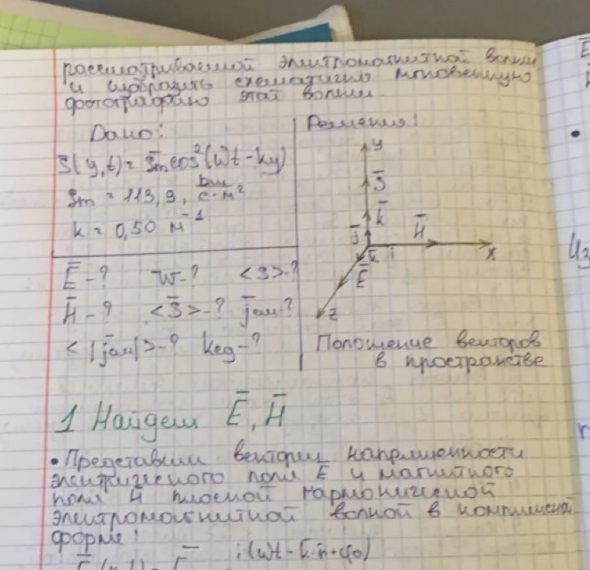 рассматриваемой электромагнитной волны
и изобразить схематично мгновенную
фотографию этой волны.
Дано:
S(y,t)= S̄m cos²(wt-ky)
Sm = 113,9,
k = 0,50 м⁻¹
Ē-? w-? <S>-?
H̄-? <S̄>-? j̄см-?
<|j̄см|>-? kед-?
Решение:
y
S̄
k̄
j̄ H̄
k̄ i x
Ē
z
Положение векторов
в пространстве
1 Найдем Ē, H̄
• Представим векторы напряженности
электрического поля E и магнитного
поля H плоской гармонической
электромагнитной волной в комплексной
форме:
i(wt - k̄·n̄+φ0)